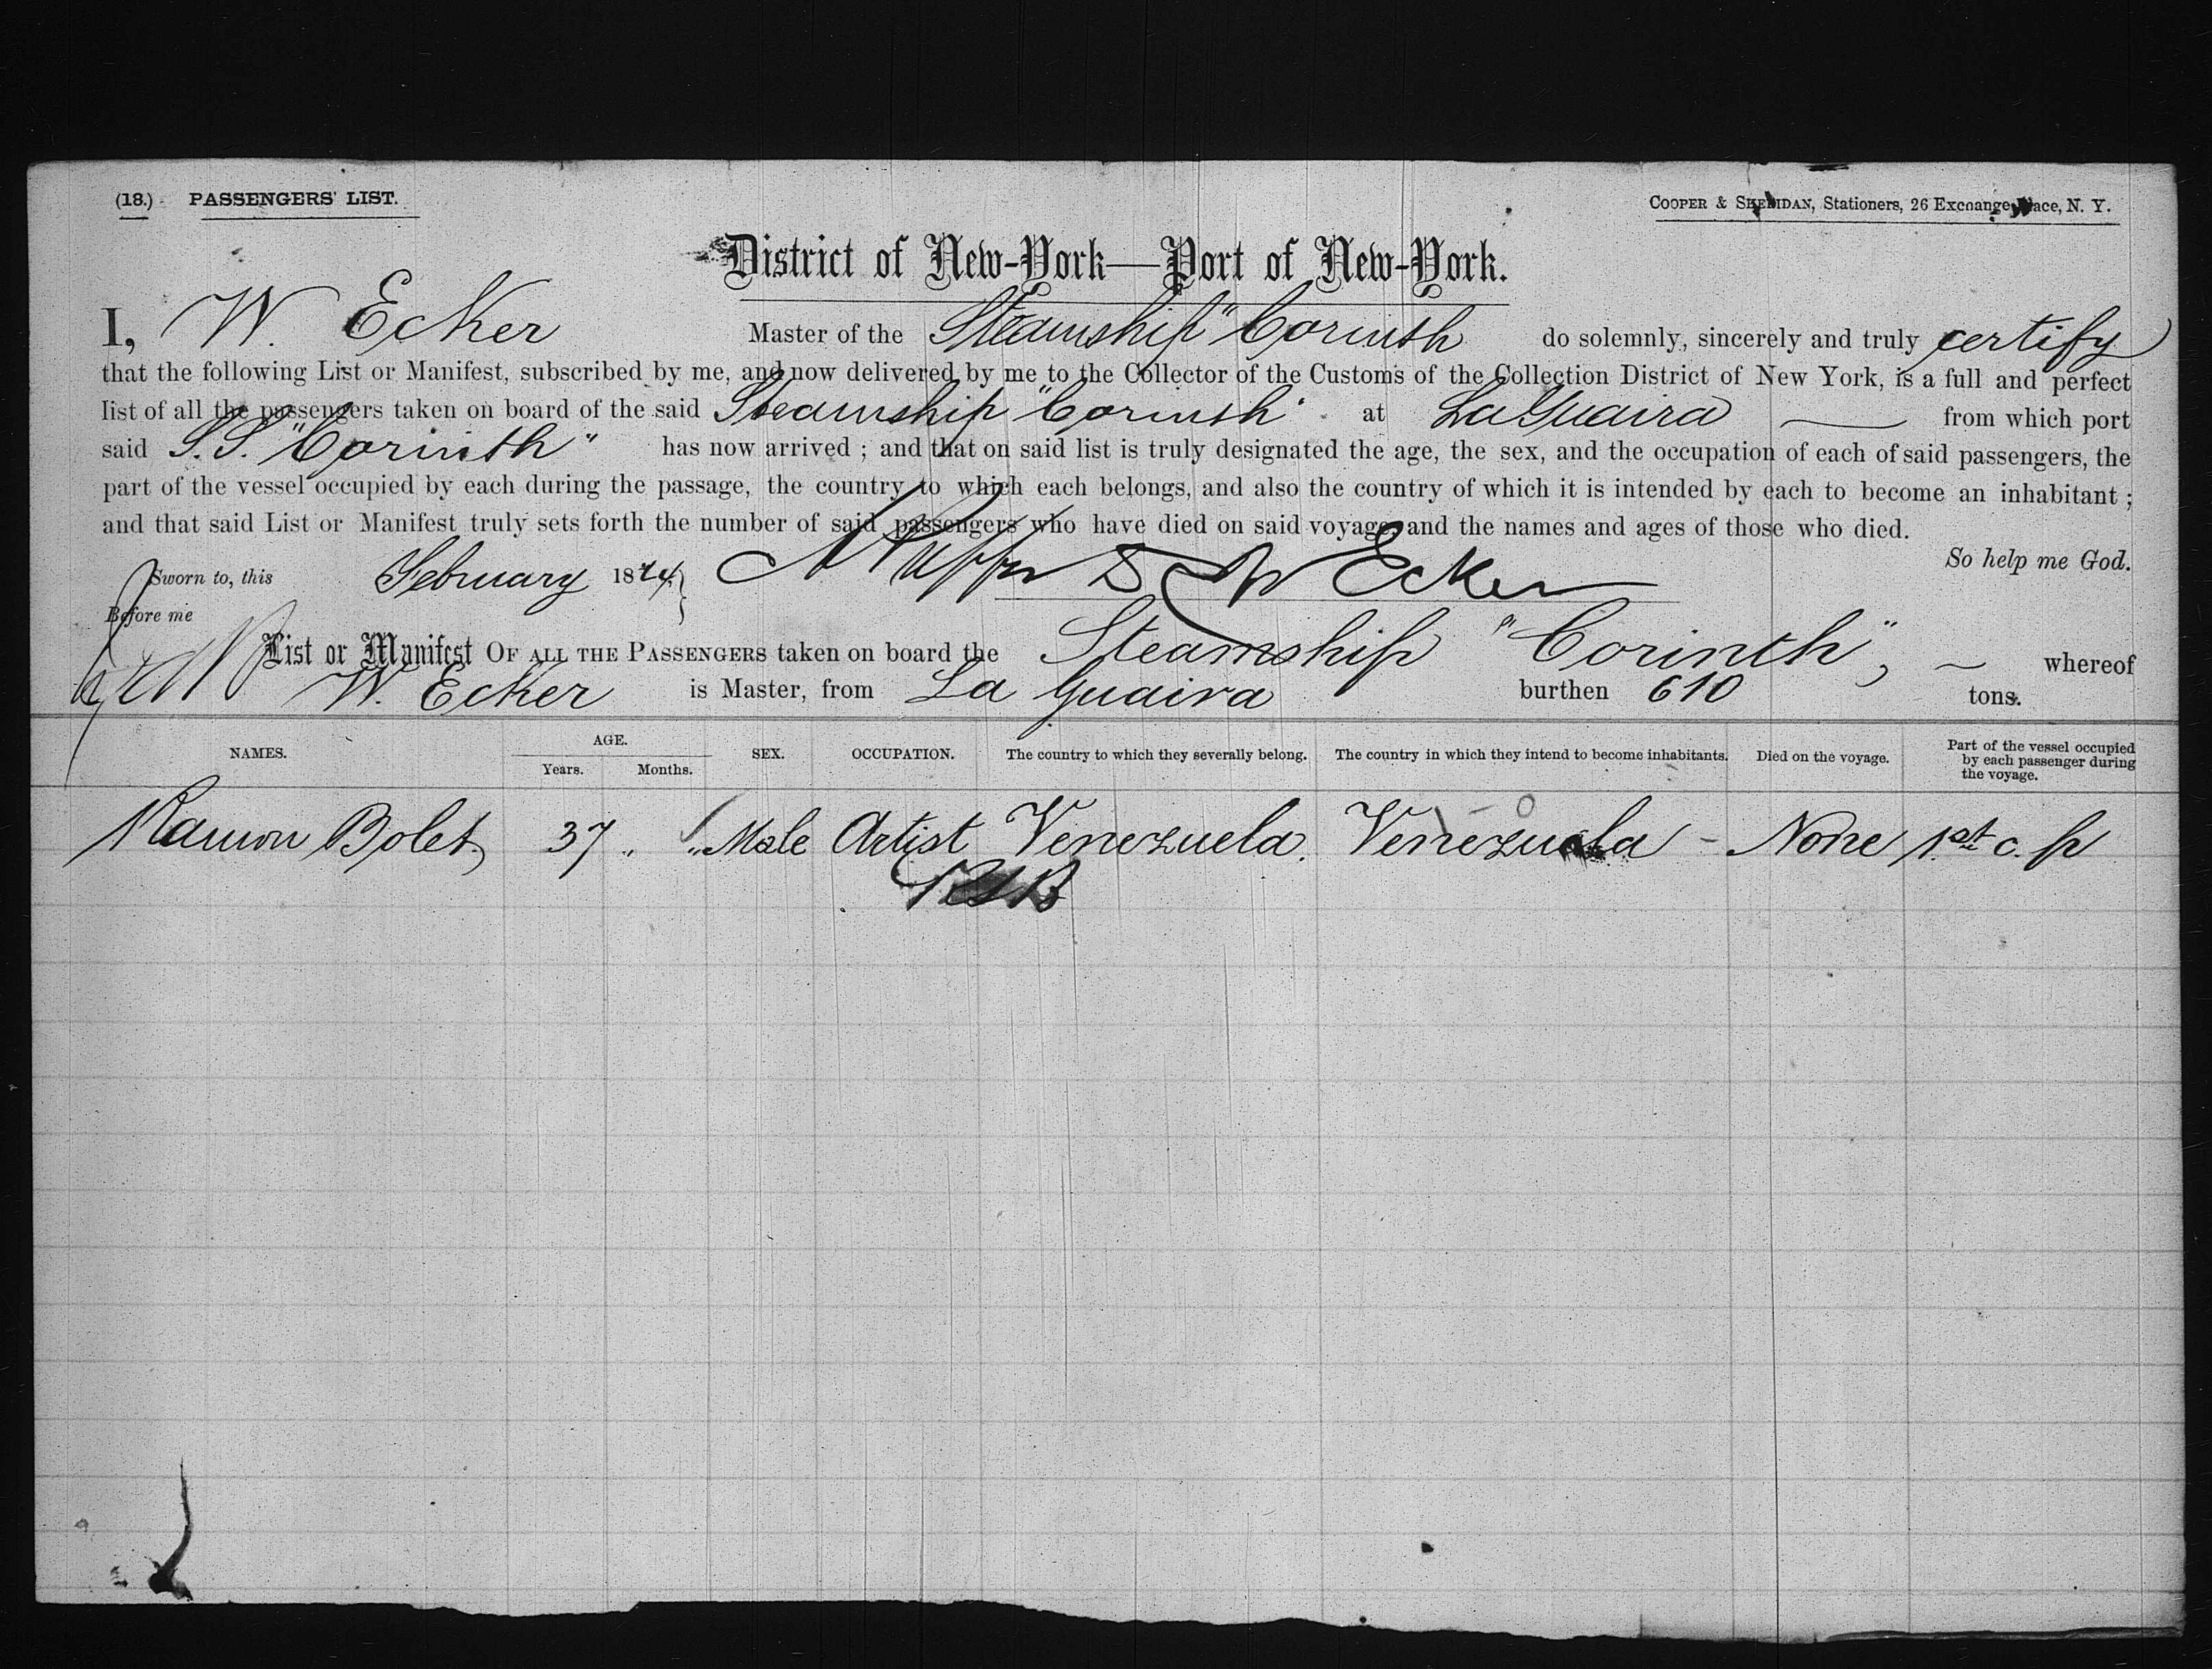 (18.) PASSENGERS' LIST.
COOPER & SHERIDAN, Stationers, 26 Exchange Place, N. Y.
District of New-York—Port of New-York.
I, W. Ecker Master of the Steamship "Corinth do solemnly, sincerely and truly certify
that the following List or Manifest, subscribed by me, and now delivered by me to the Collector of the Customs of the Collection District of New York, is a full and perfect
list of all the passengers taken on board of the said Steamship "Corinth" at La Guaira — from which port
said S.S. "Corinth" has now arrived ; and that on said list is truly designated the age, the sex, and the occupation of each of said passengers, the
part of the vessel occupied by each during the passage, the country to which each belongs, and also the country of which it is intended by each to become an inhabitant ;
and that said List or Manifest truly sets forth the number of said passengers who have died on said voyage, and the names and ages of those who died.
So help me God.
Sworn to, this February 1874 W Ecker
Before me
List or Manifest OF ALL THE PASSENGERS taken on board the Steamship "Corinth", — whereof
W. Ecker is Master, from La Guaira burthen 610 tons.
NAMES. AGE. Years. Months. SEX. OCCUPATION. The country to which they severally belong. The country in which they intend to become inhabitants. Died on the voyage. Part of the vessel occupied by each passenger during the voyage.
Ramon Bolet, 37 " " Male Artist Venezuela. Venezuela - None 1st c. p